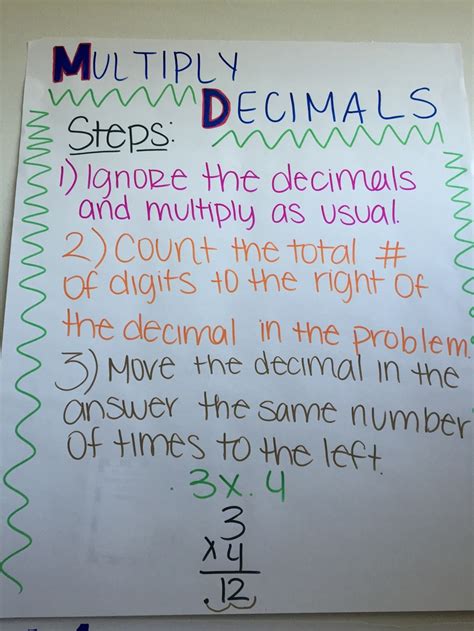 MULTIPLY
DECIMALS
Steps:
1) Ignore the decimals
and multiply as usual.
2) Count the total #
of digits to the right of
the decimal in the problem.
3) Move the decimal in the
answer the same number
of times to the left.
.3x.4
3
x4
.12